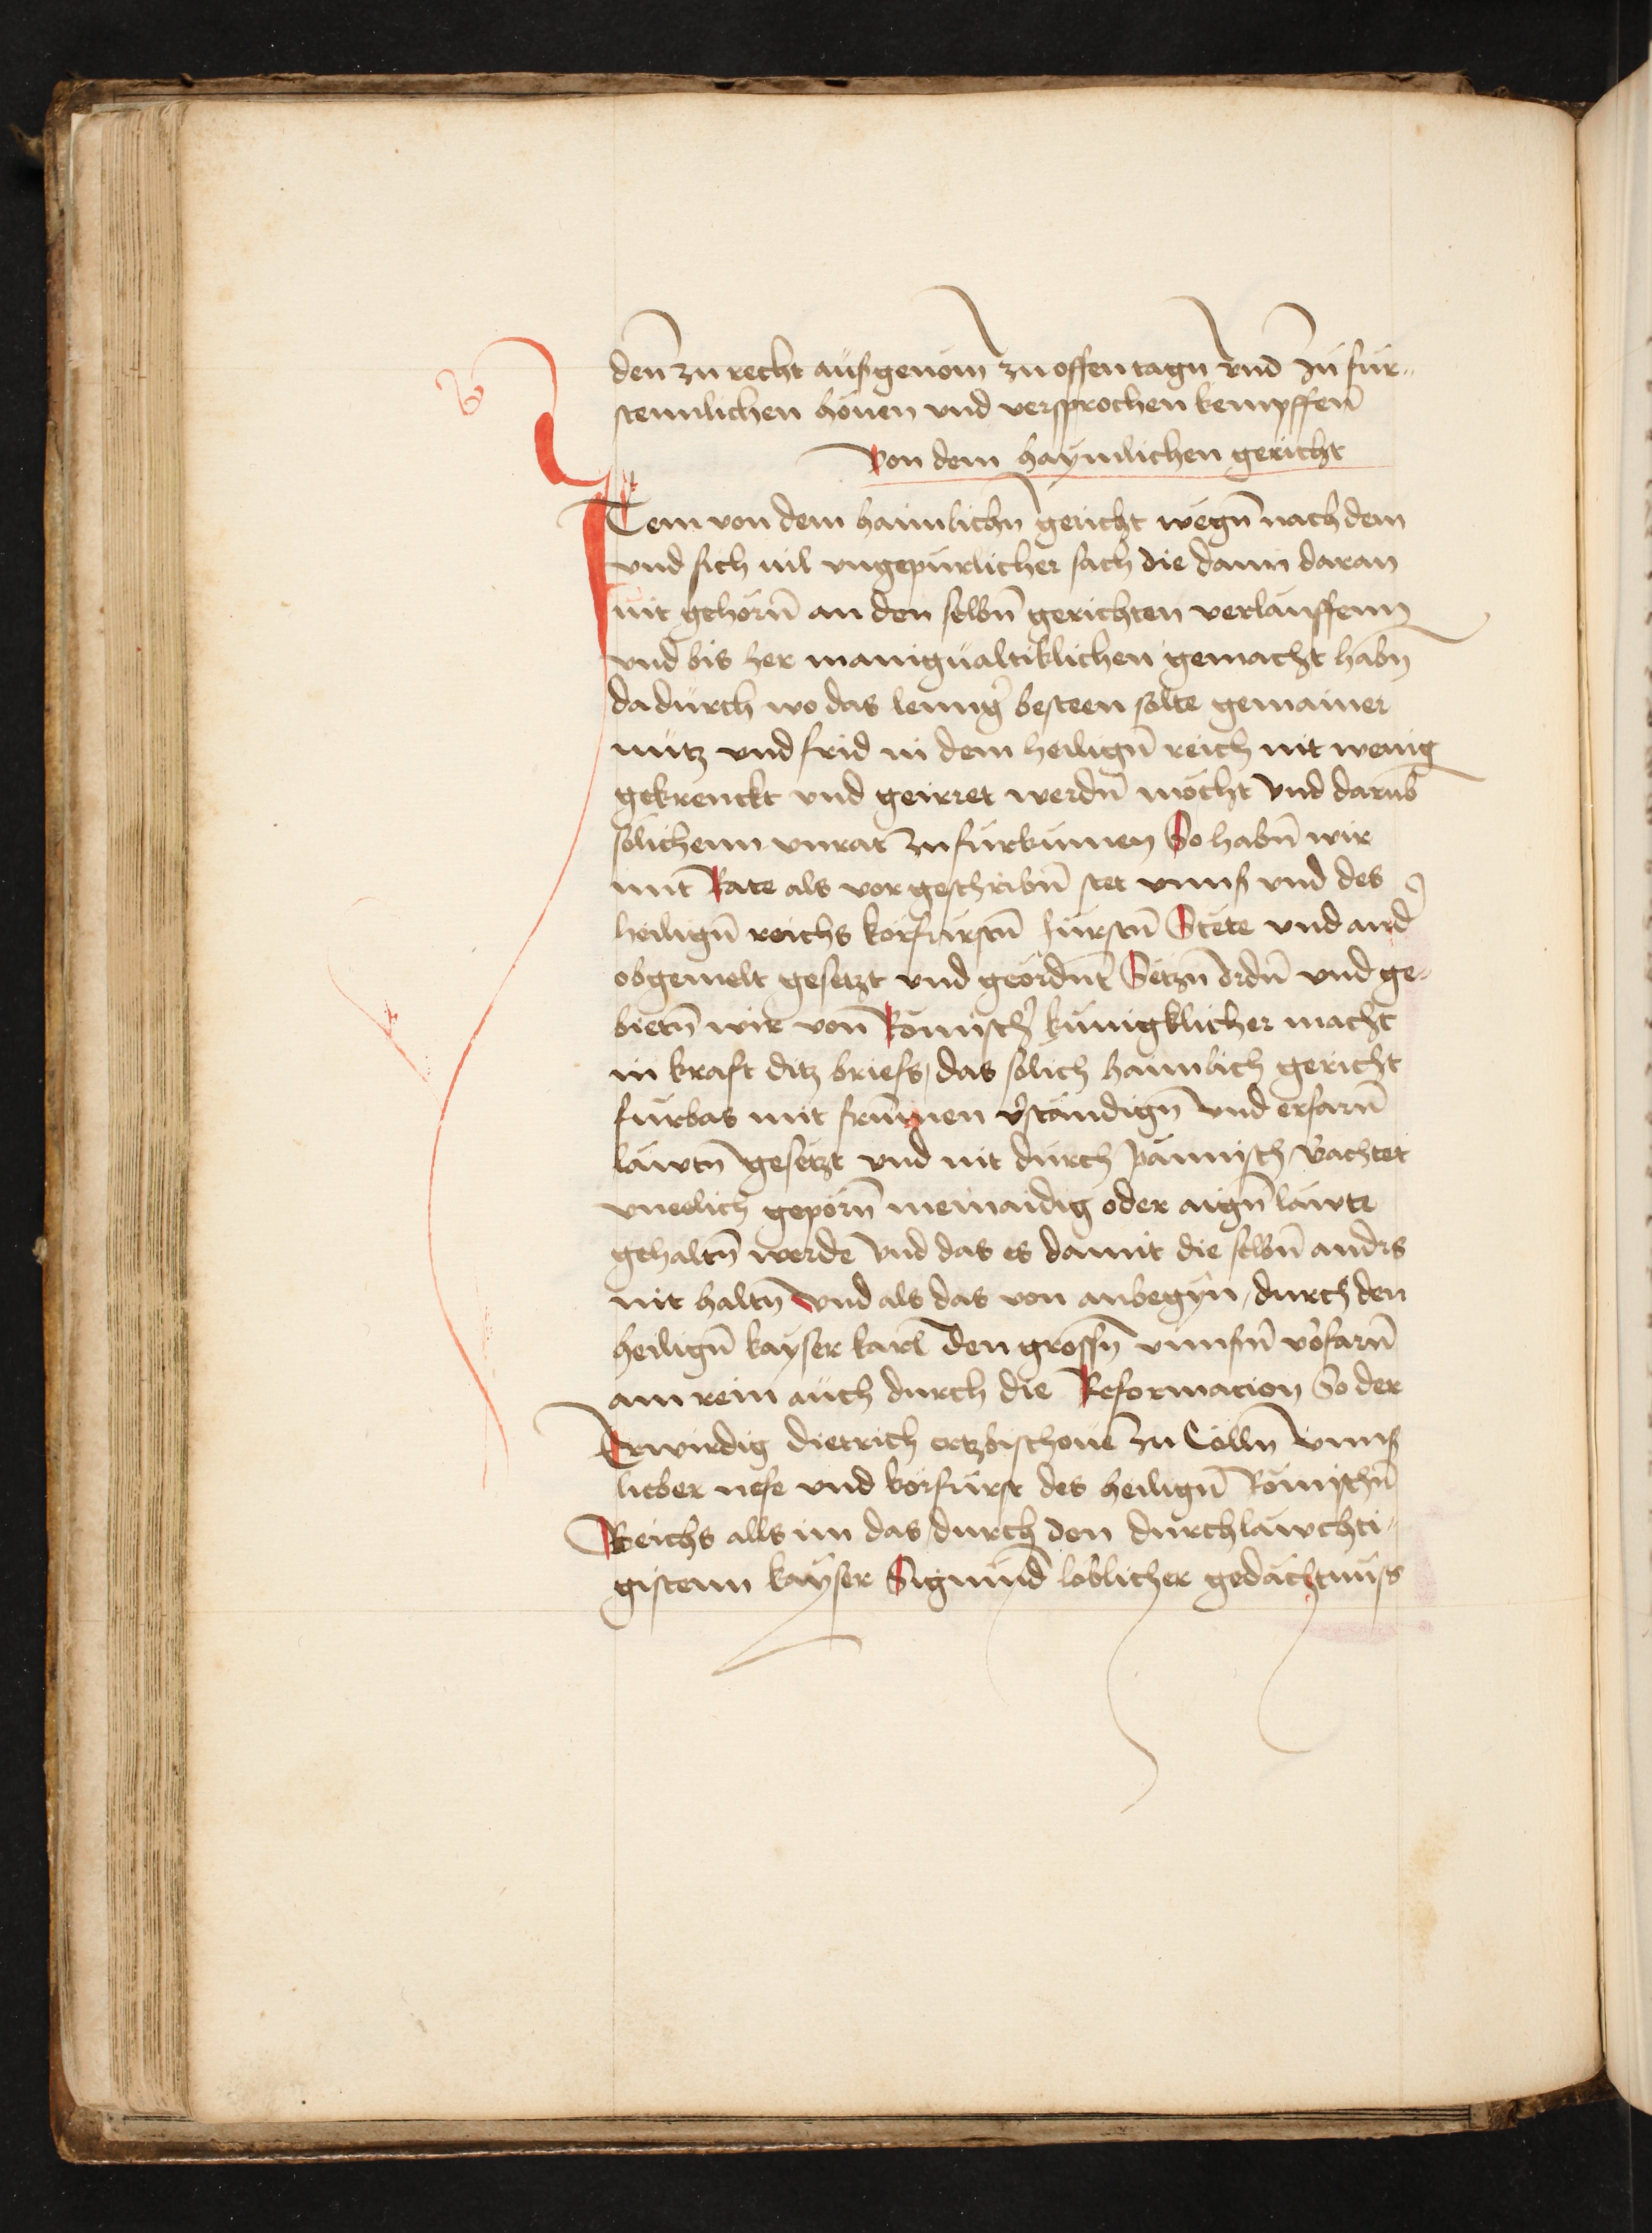 den̄ zu recht außgenom̄ zu offen tagn̄ vnd In für-
stennlichen höuen vnd versprochen kempffen̄
Von dem haymlichen gericht
Item von dem haimlichn̄ gericht wegn̄ nach dem
vnd sich uil vngepürlicher sach die dann daran
nit gehörn̄ an den selbn̄ gerichten verlauffenn
vnd bis her manigualtiklichen gemacht habn̄
dadurch wo das lenng̾ besteen solte gemainer
nutz vnd frid in dem heilign̄ reich nit wenig
gekrenckt vnd geirret werdn̄ möcht Vnd darūb
sölichenn vnrat zu fürkumen So habn̄ wir
mit Rate als vor geschribn̄ stet vnnß vnd des
heilign̄ reichs körfürstn̄ fürstn̄ Stete vnd and̾
obgemelt gesetzt vnd geordnt Setzn̄ ordn̄ vnd ge-
bietn̄ wir von Römisch̾ künigklicher macht
in kraft ditz briefs, das sölich haimlich gericht
fürbas mit frūmen v̾ständign̄ vnd erfarn̄
läwtn̄ gesetzt vnd nit durch pännisch, vachtet
vneelich geporn̄ meinaidig oder aign̄ läwte
gehaltn̄ werde Vnd das es damit die selbn̄ anders
nit haltn̄ Vnd als das von anbegyn̄, durch den
heilign̄ kayser karl den grossn̄ vnnsn̄ vofarn̄
am rein auch durch die Reformacion So der
Erwirdig dietrich ertzbischoue zu Cölln̄ Vnnß
lieber nefe vnd körfürst des heilign̄ Römischn̄
Reichs alls im das, durch den durchläwchti-
gistenn kayser Sigmund loblicher gedächtnuss